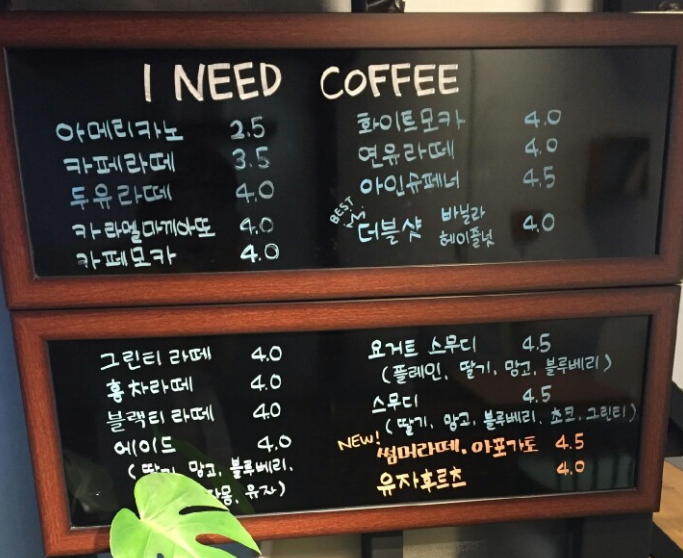 I NEED COFFEE
아메리카노 2.5
카페라떼 3.5
두유라떼 4.0
카라멜마끼아또 4.0
카페모카 4.0
화이트모카 4.0
연유라떼 4.0
아인슈페너 4.5
BEST 더블샷 바닐라 헤이즐넛 4.0
그린티 라떼 4.0
홍차라떼 4.0
블랙티 라떼 4.0
에이드 4.0
(딸기, 망고, 블루베리,
자몽, 유자)
요거트 스무디 4.5
(플레인, 딸기, 망고, 블루베리)
스무디 4.5
(딸기, 망고, 블루베리, 쵸코, 그린티)
NEW! 썸머라떼, 아포가토 4.5
유자후르츠 4.0